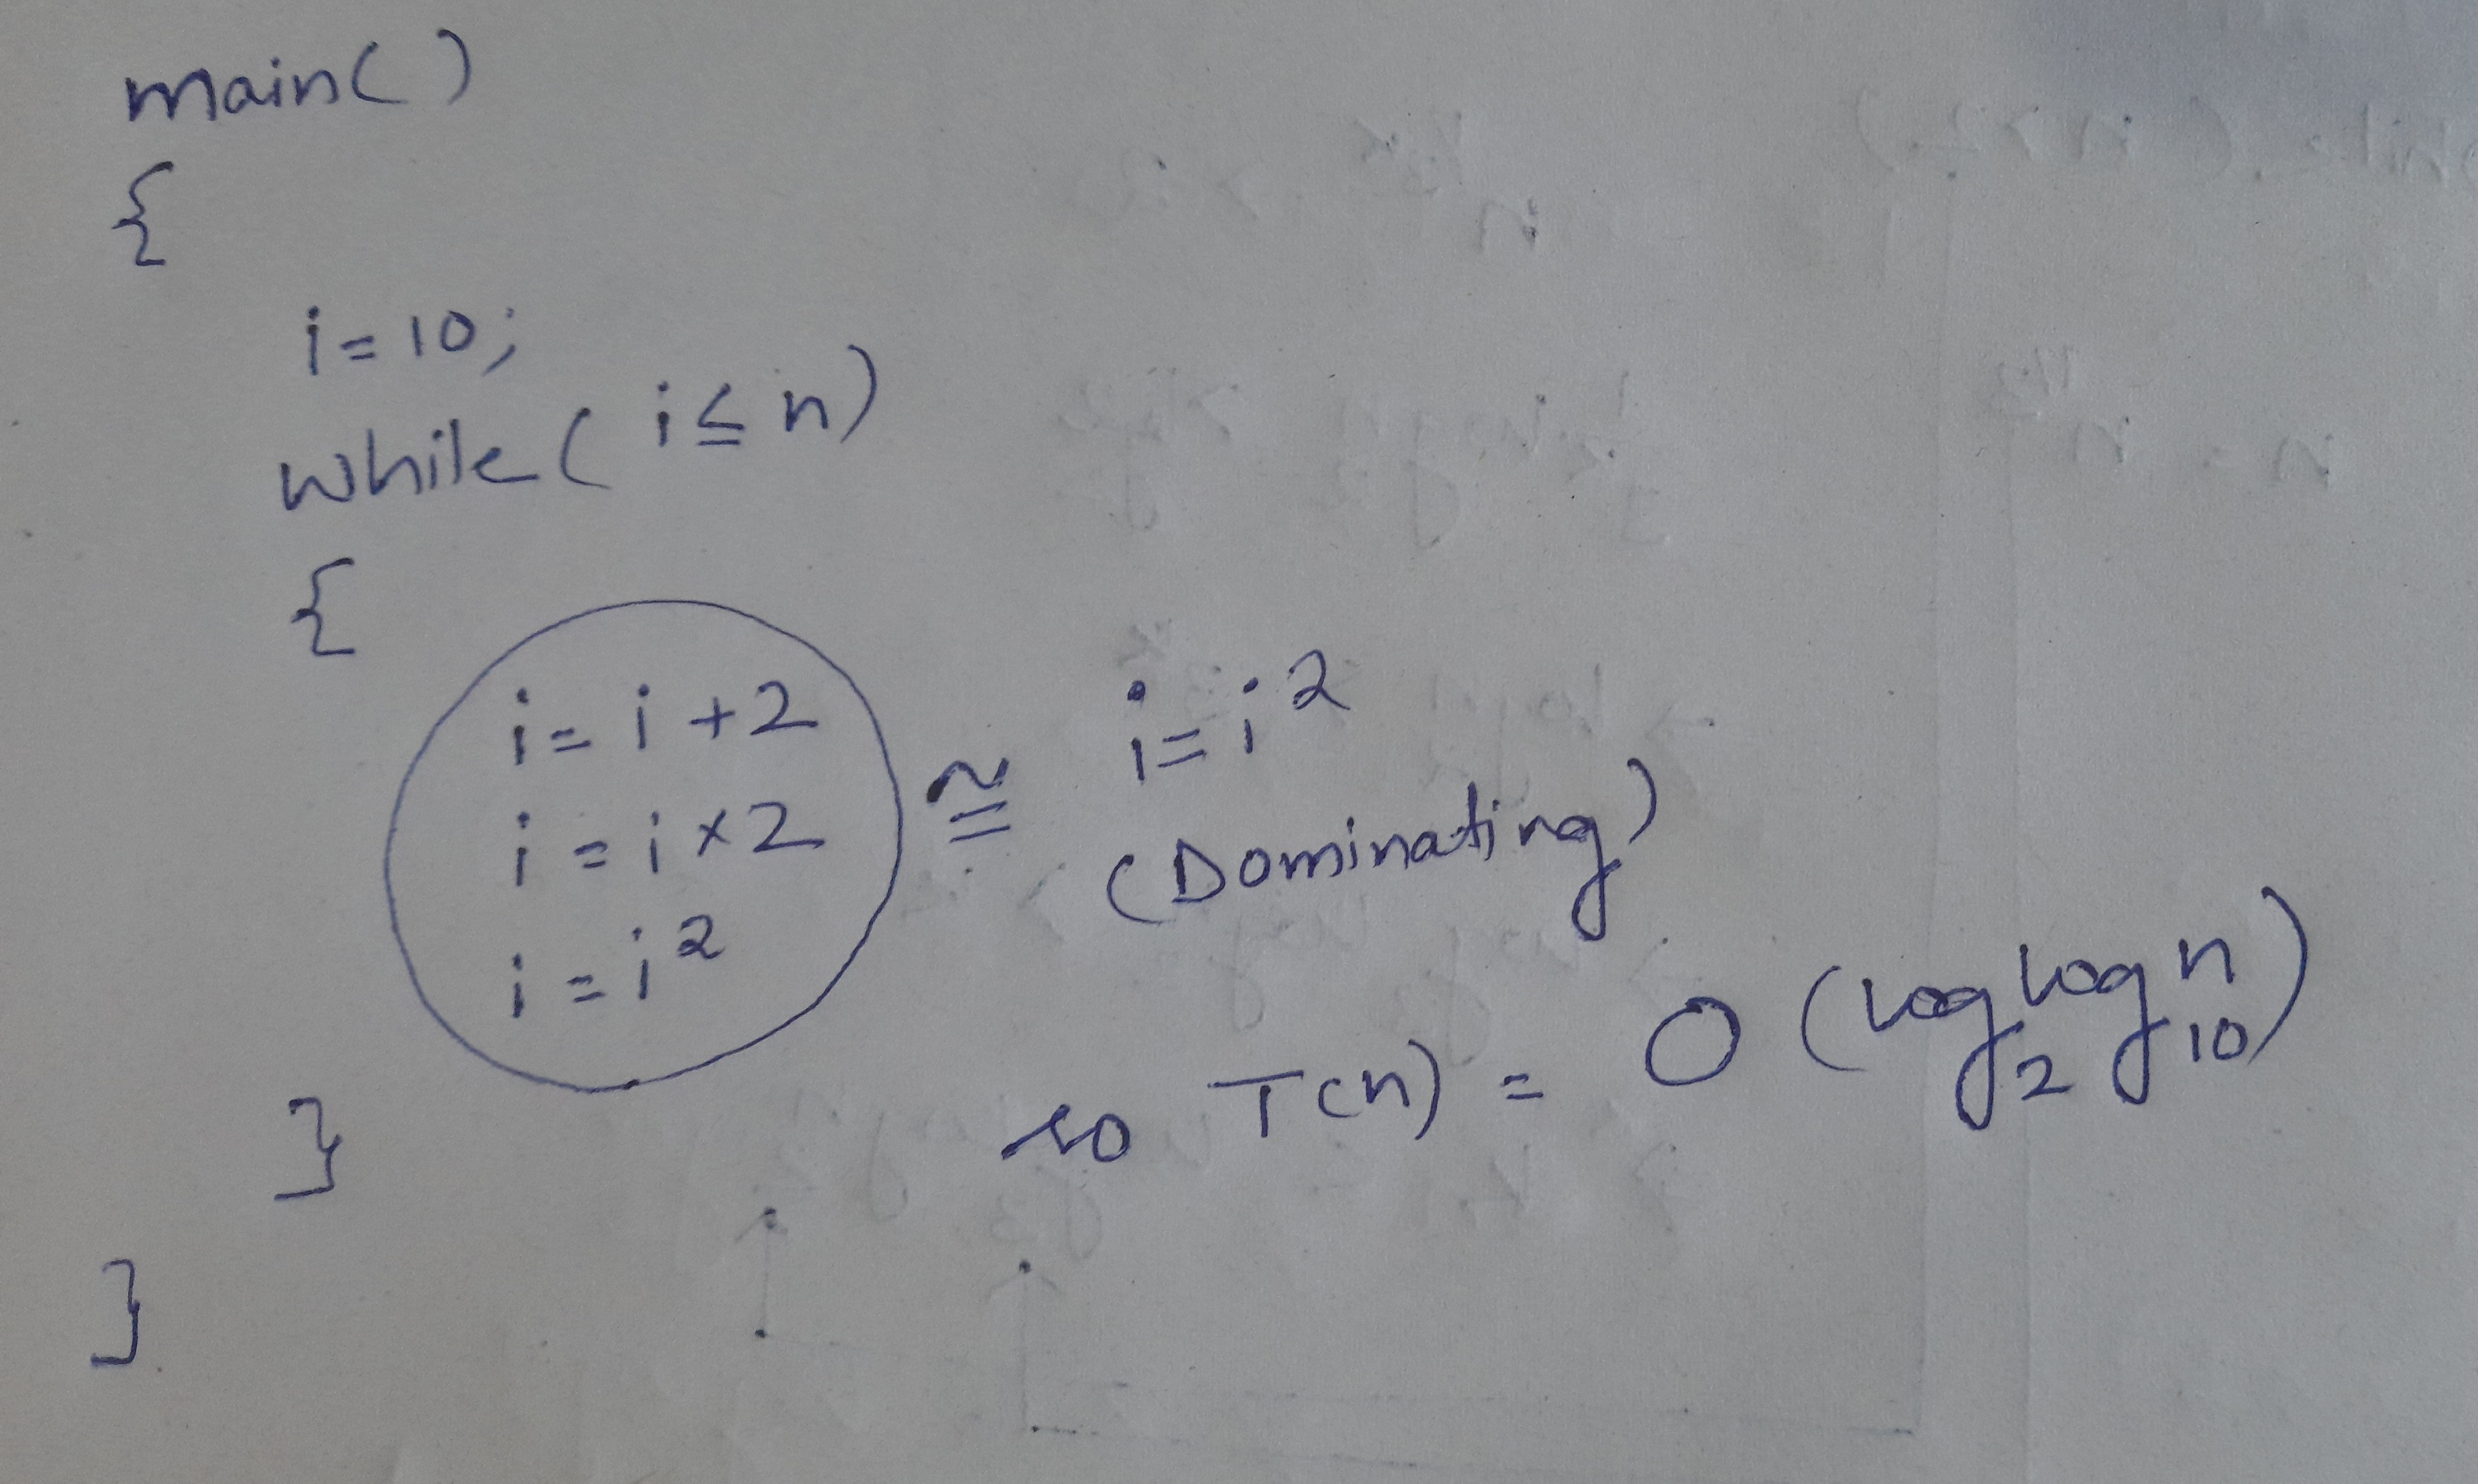 main()
{
i=10;
while(i≤n)
{
i=i+2
i=i×2
i=i²
≅ i=i²
(Dominating)
so T(n) = O(log₂log₁₀n)
}
}